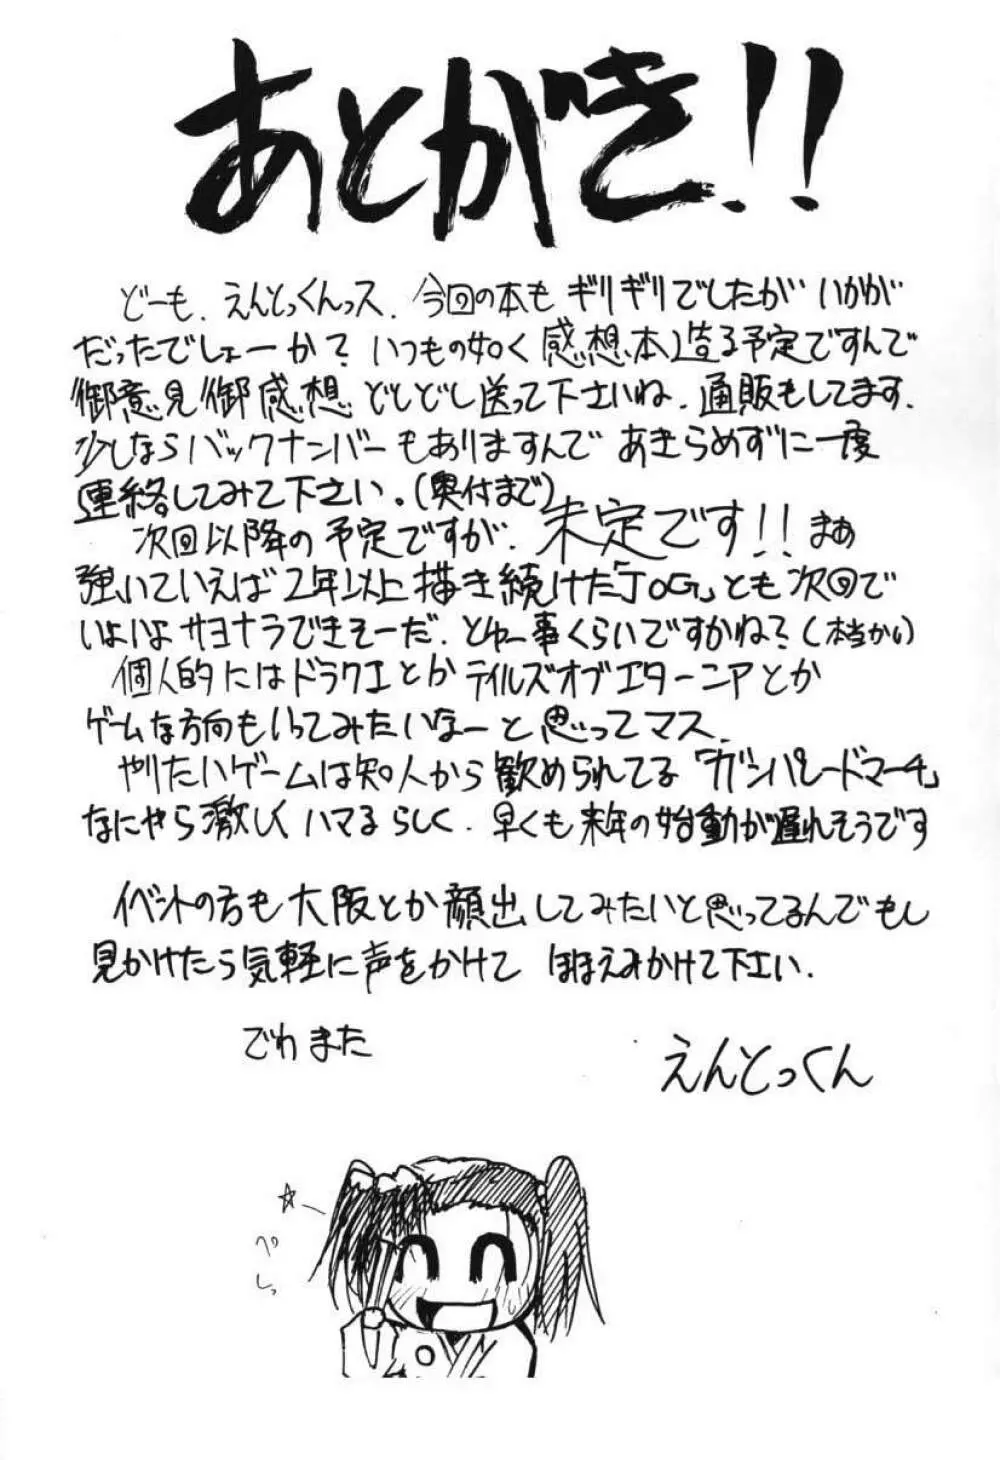 あとがき!!
どーも、えんとっくんっス、今回の本もギリギリでしたがいかが
だったでしょーか？いつもの如く感想本造る予定ですんで
御意見御感想どしどし送って下さいね、通販もしてます、
少しならバックナンバーもありますんであきらめずに一度
連絡してみて下さい。(奥付まで)
次回以降の予定ですが、未定です!!まあ
強いていえば2年以上描き続けた「JOG」とも次回で
いよいよサヨナラできそーだ、とゆー事くらいですかね？(本当かい)
個人的にはドラクエとかテイルズオブエターニアとか
ゲームな方向もいってみたいなーと思ってマス、
やりたいゲームは知人から歓められてる「ガンパレードマーチ」
なにやら激しくハマるらしく、早くも来年の始動が遅れそうです
イベントの方も大阪とか顔出してみたいと思ってるんでもし
見かけたら気軽に声をかけてほほえみかけて下さい、
でわまた
えんとっくん
ペ
しっ